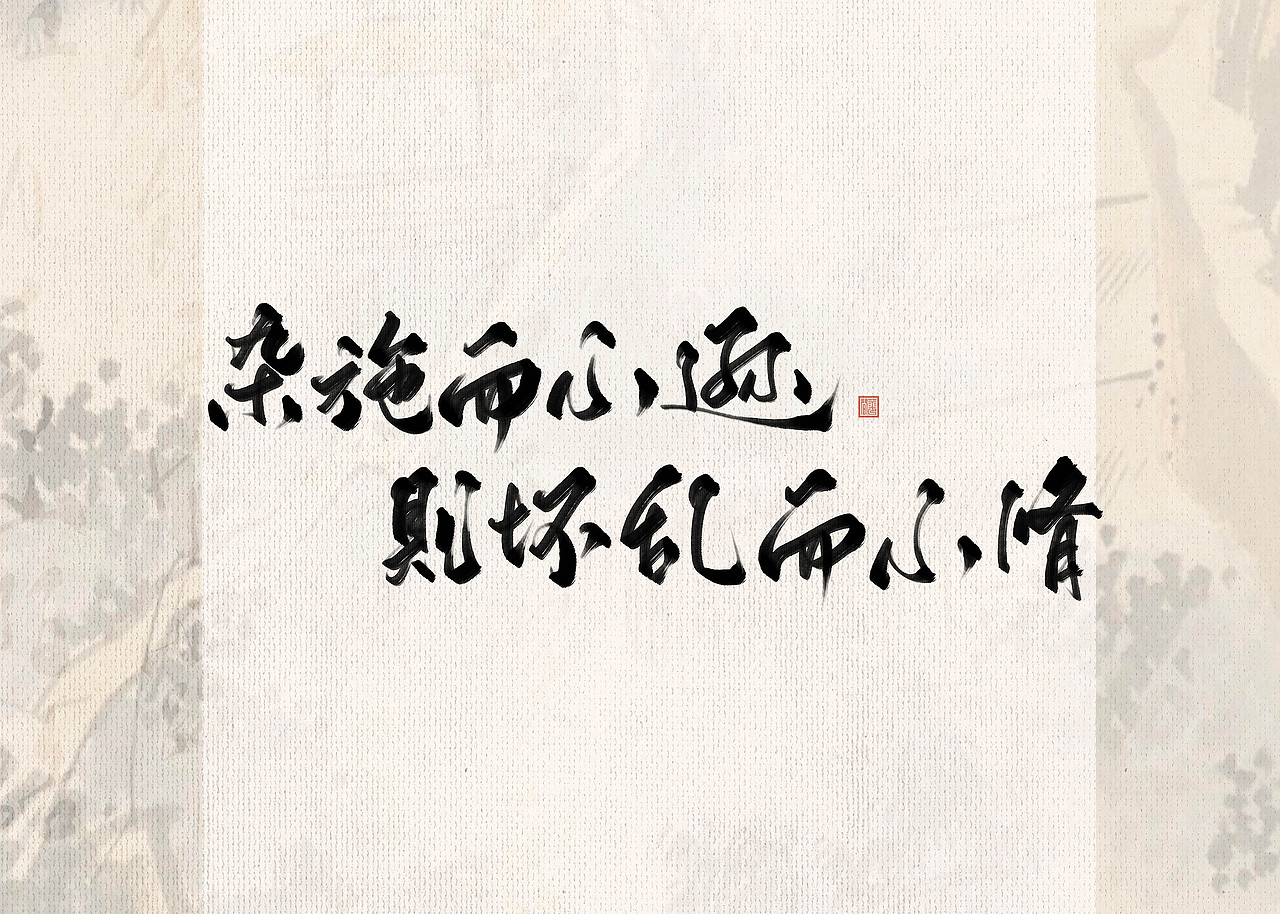 杂施而不逊
则坏乱而不修